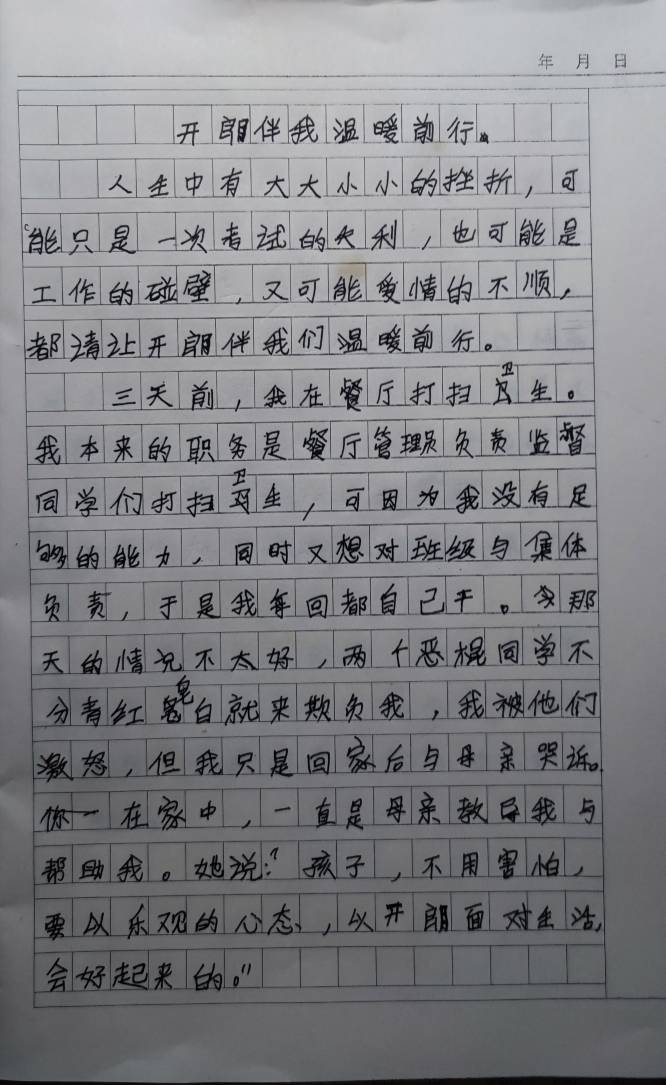 年 月 日
开朗伴我温暖前行。
人生中有大大小小的挫折，可
能只是一次考试的失利，也可能是
工作的碰壁，又可能爱情的不顺，
都请让开朗伴我们温暖前行。
三天前，我在餐厅打扫卫生。
我本来的职务是餐厅管理员负责监督
同学们打扫卫生，可因为我没有足
够的能力，同时又想对班级与集体
负责，于是我每回都自己干。那
天的情况不太好，两个恶棍同学不
分青红皂白就来欺负我，我被他们
激怒，但我只是回家后与母亲哭诉。
你一在家中，一直是母亲教导我与
帮助我。她说：“孩子，不用害怕，
要以乐观的心态，以开朗面对生活，
会好起来的。”